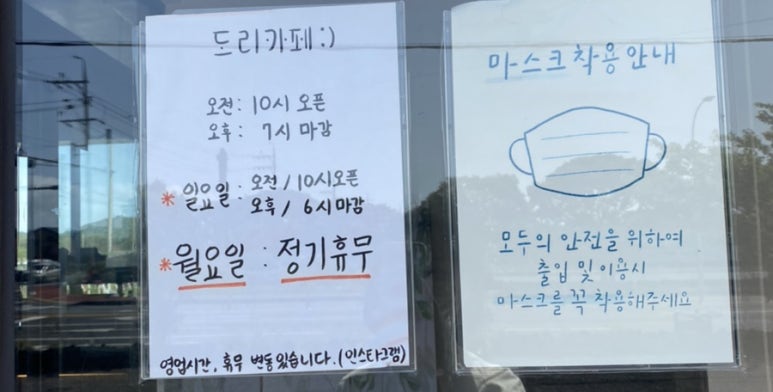 드리카페:)
오전: 10시 오픈
오후: 7시 마감
* 일요일: 오전/10시오픈
오후/6시마감
* 월요일 : 정기휴무
영업시간, 휴무 변동있습니다.(인스타그램)
마스크 착용 안내
모두의 안전을 위하여
출입 및 이용시
마스크를 꼭 착용해주세요